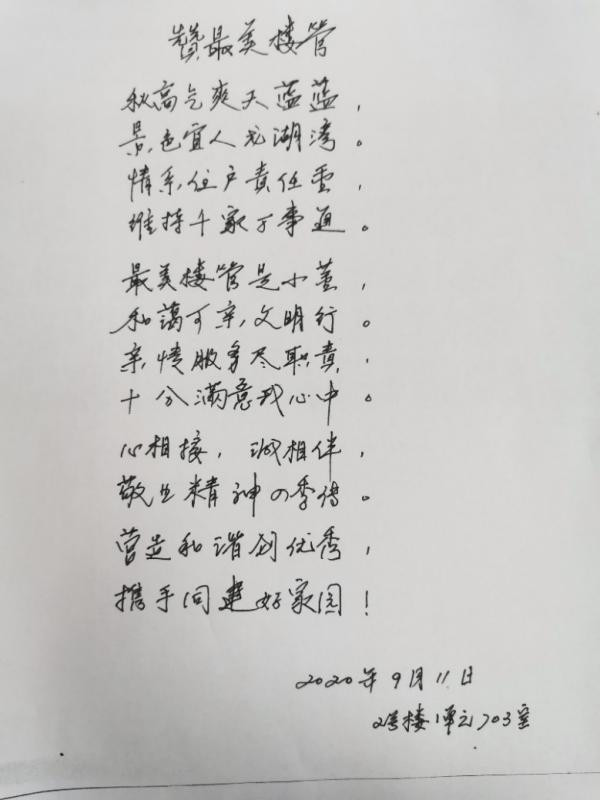 赞最美楼管
秋高气爽天蓝蓝，
景色宜人龙湖湾。
情系住户责任重，
维持千家万事通。
最美楼管是小董，
和蔼可亲，文明行。
亲情服务尽职责，
十分满意我心中。
心相接，诚相伴，
敬业精神四季传。
营造和谐创优秀，
携手同建好家园！
2020年9月11日
2号楼1单元703室